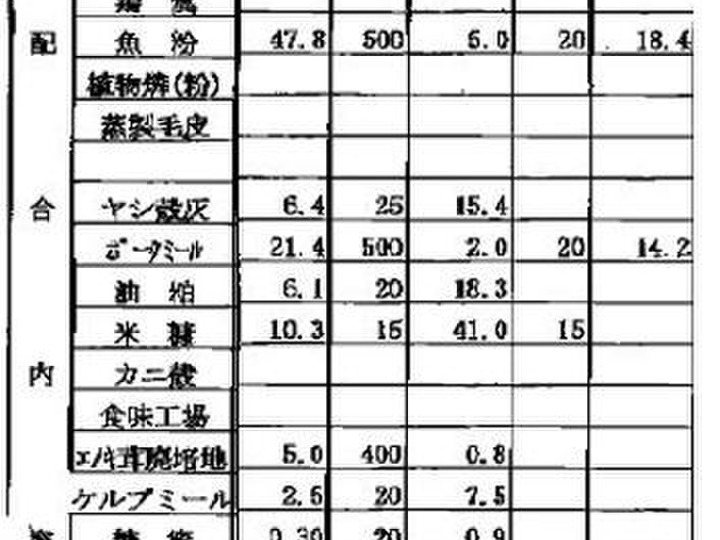 配 魚 粉 47.8 500 5.0 20 18.4
植物燐(粉)
蒸製毛皮
合 ヤシ殻灰 6.4 25 15.4
21.4 500 2.0 20 14.2
油 粕 6.1 20 18.3
米 糠 10.3 15 41.0 15
内 カニ殻
食味工場
エノキ茸廃培地 5.0 400 0.8
ケルプミール 2.5 20 7.5
0.30 20 0.9